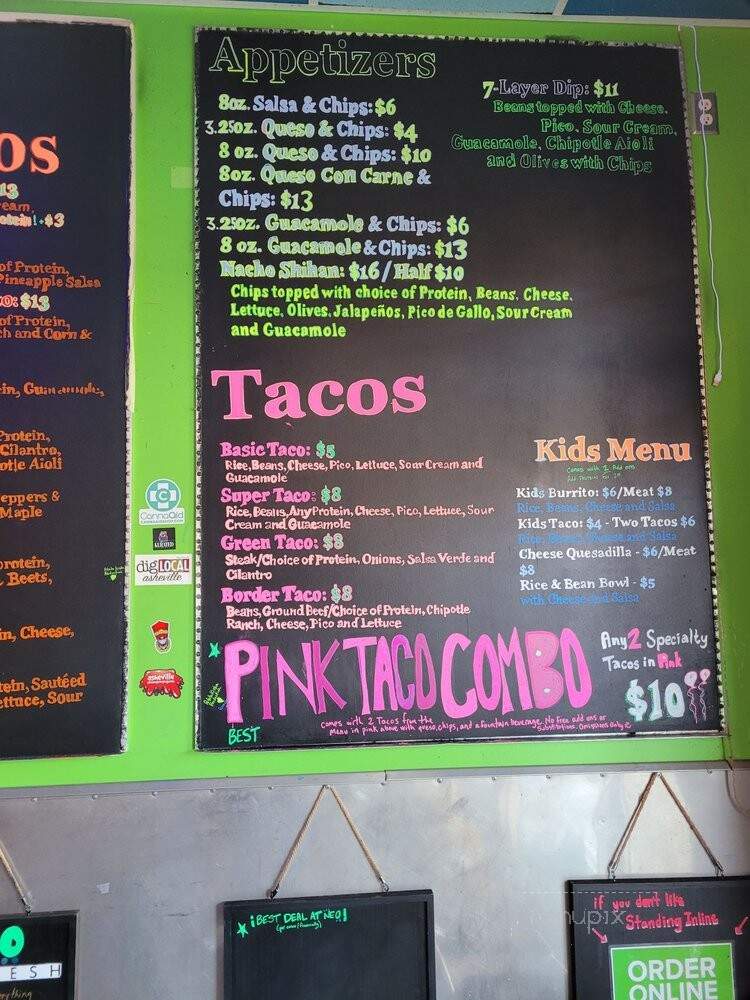 os
13
ream,
otein!+$3
of Protein,
Pineapple Salsa
o: $13
of Protein,
ch and Corn &
in, Guacamole,
Protein,
Cilantro,
otle Aioli
eppers &
Maple
protein,
Beets,
in, Cheese,
tein, Sautéed
ettuce, Sour
Appetizers
8oz. Salsa & Chips: $6
3.25oz. Queso & Chips: $4
8 oz. Queso & Chips: $10
8oz. Queso Con Carne &
Chips: $13
3.25oz. Guacamole & Chips: $6
8 oz. Guacamole & Chips: $13
Nacho Shihan: $16 / Half $10
Chips topped with choice of Protein, Beans, Cheese,
Lettuce, Olives, Jalapeños, Pico de Gallo, Sour Cream
and Guacamole
7-Layer Dip: $11
Beans topped with Cheese,
Pico, Sour Cream,
Guacamole, Chipotle Aioli
and Olives with Chips
Tacos
Basic Taco: $5
Rice, Beans, Cheese, Pico, Lettuce, Sour Cream and
Guacamole
Super Taco: $8
Rice, Beans, Any Protein, Cheese, Pico, Lettuce, Sour
Cream and Guacamole
Green Taco: $8
Steak/Choice of Protein, Onions, Salsa Verde and
Cilantro
Border Taco: $8
Beans, Ground Beef/Choice of Protein, Chipotle
Ranch, Cheese, Pico and Lettuce
Kids Menu
Comes with 2 Add ons
Kids Burrito: $6/Meat $8
Rice, Beans, Cheese and Salsa
Kids Taco: $4 - Two Tacos $6
Rice, Beans, Cheese and Salsa
Cheese Quesadilla - $6/Meat
$8
Rice & Bean Bowl - $5
with Cheese and Salsa
PINK TACO COMBO
Any 2 Specialty
Tacos in Pink
$10
BEST
comes with 2 Tacos from the
menu in pink above with queso, chips, and a fountain beverage. No free add ons or
Substitutions. Omissions Only
CannaAid
digLOCAL
asheville
asheville
¡BEST DEAL AT NEO!
if you don't like
Standing Inline
ORDER
ONLINE
O
ESH
erything